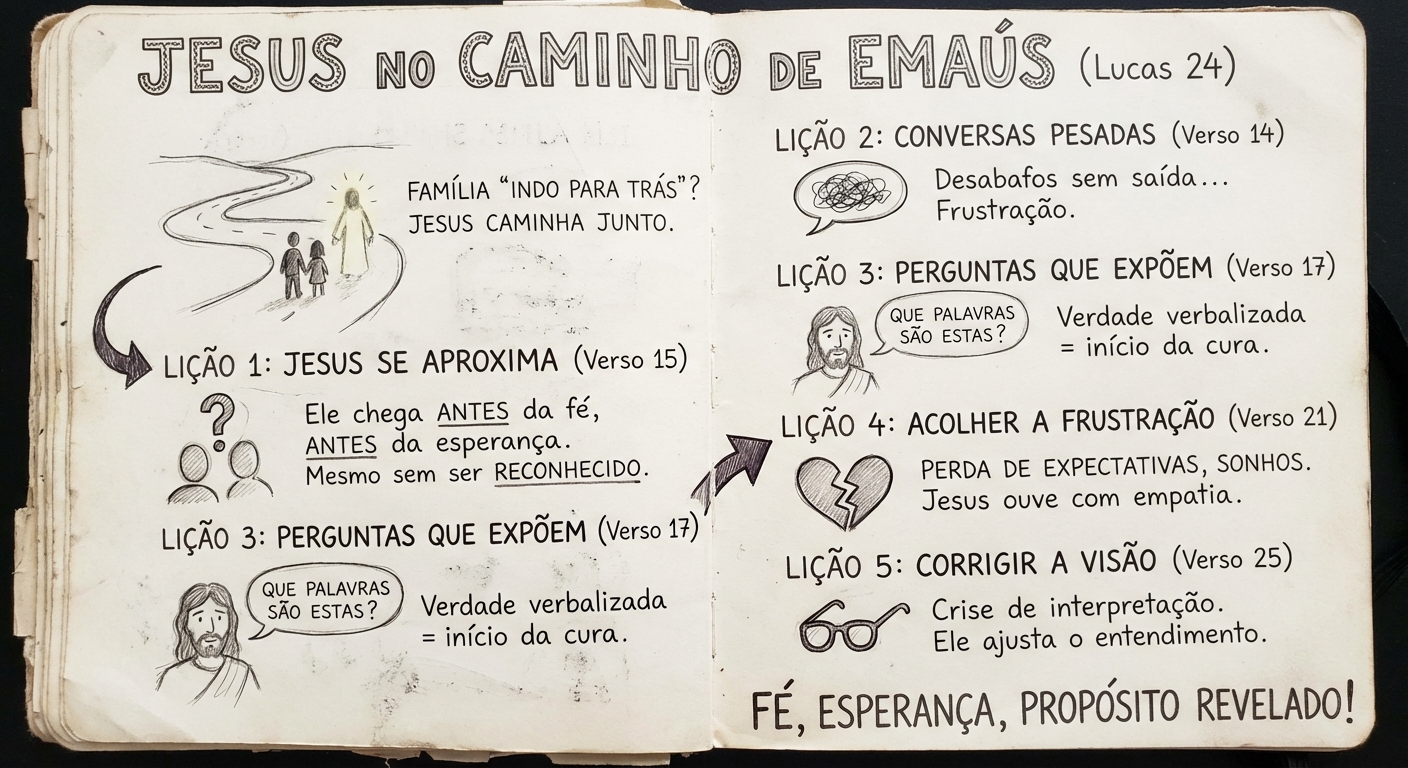 JESUS NO CAMINHO DE EMAÚS (Lucas 24)
FAMÍLIA “INDO PARA TRÁS”?
JESUS CAMINHA JUNTO.
LIÇÃO 1: JESUS SE APROXIMA (Verso 15)
?
Ele chega ANTES da fé,
ANTES da esperança.
Mesmo sem ser RECONHECIDO.
LIÇÃO 3: PERGUNTAS QUE EXPÕEM (Verso 17)
QUE PALAVRAS
SÃO ESTAS?
Verdade verbalizada
= início da cura.
LIÇÃO 2: CONVERSAS PESADAS (Verso 14)
Desabafos sem saída...
Frustração.
LIÇÃO 3: PERGUNTAS QUE EXPÕEM (Verso 17)
QUE PALAVRAS
SÃO ESTAS?
Verdade verbalizada
= início da cura.
LIÇÃO 4: ACOLHER A FRUSTRAÇÃO (Verso 21)
PERDA DE EXPECTATIVAS, SONHOS.
Jesus ouve com empatia.
LIÇÃO 5: CORRIGIR A VISÃO (Verso 25)
Crise de interpretação.
Ele ajusta o entendimento.
FÉ, ESPERANÇA, PROPÓSITO REVELADO!